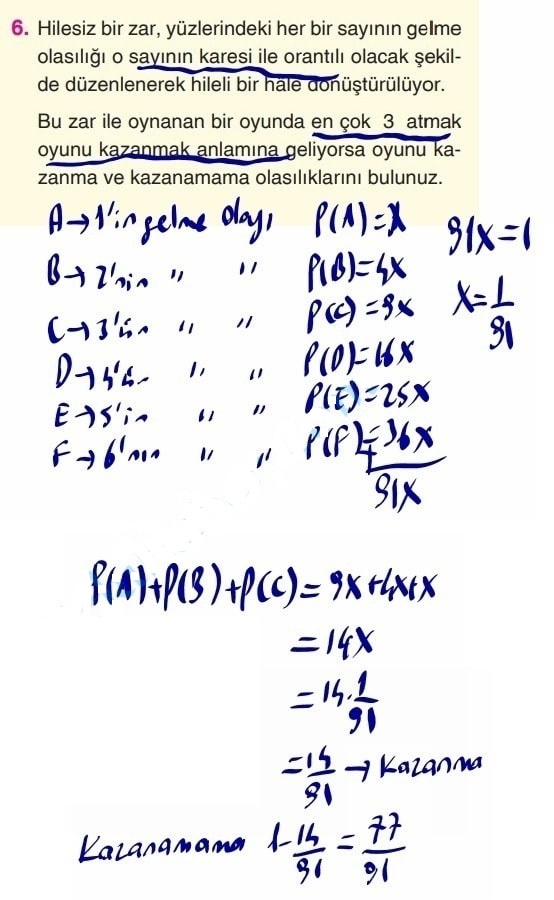 6. Hilesiz bir zar, yüzlerindeki her bir sayının gelme
olasılığı o sayının karesi ile orantılı olacak şekil-
de düzenlenerek hileli bir hâle dönüştürülüyor.
Bu zar ile oynanan bir oyunda en çok 3 atmak
oyunu kazanmak anlamına geliyorsa oyunu ka-
zanma ve kazanamama olasılıklarını bulunuz.
A→1'in gelme olayı P(A)=X 91X=1
B→2'nin " " P(B)=4X X=1/91
C→3'ün " " P(C)=9X
D→4'ün " " P(D)=16X
E→5'in " " P(E)=25X
F→6'nın " " P(F)=36X
+
91X
P(A)+P(B)+P(C)=9X+4X+X
=14X
=14·1/91
=14/91 → Kazanma
Kazanamama 1-14/91 = 77/91